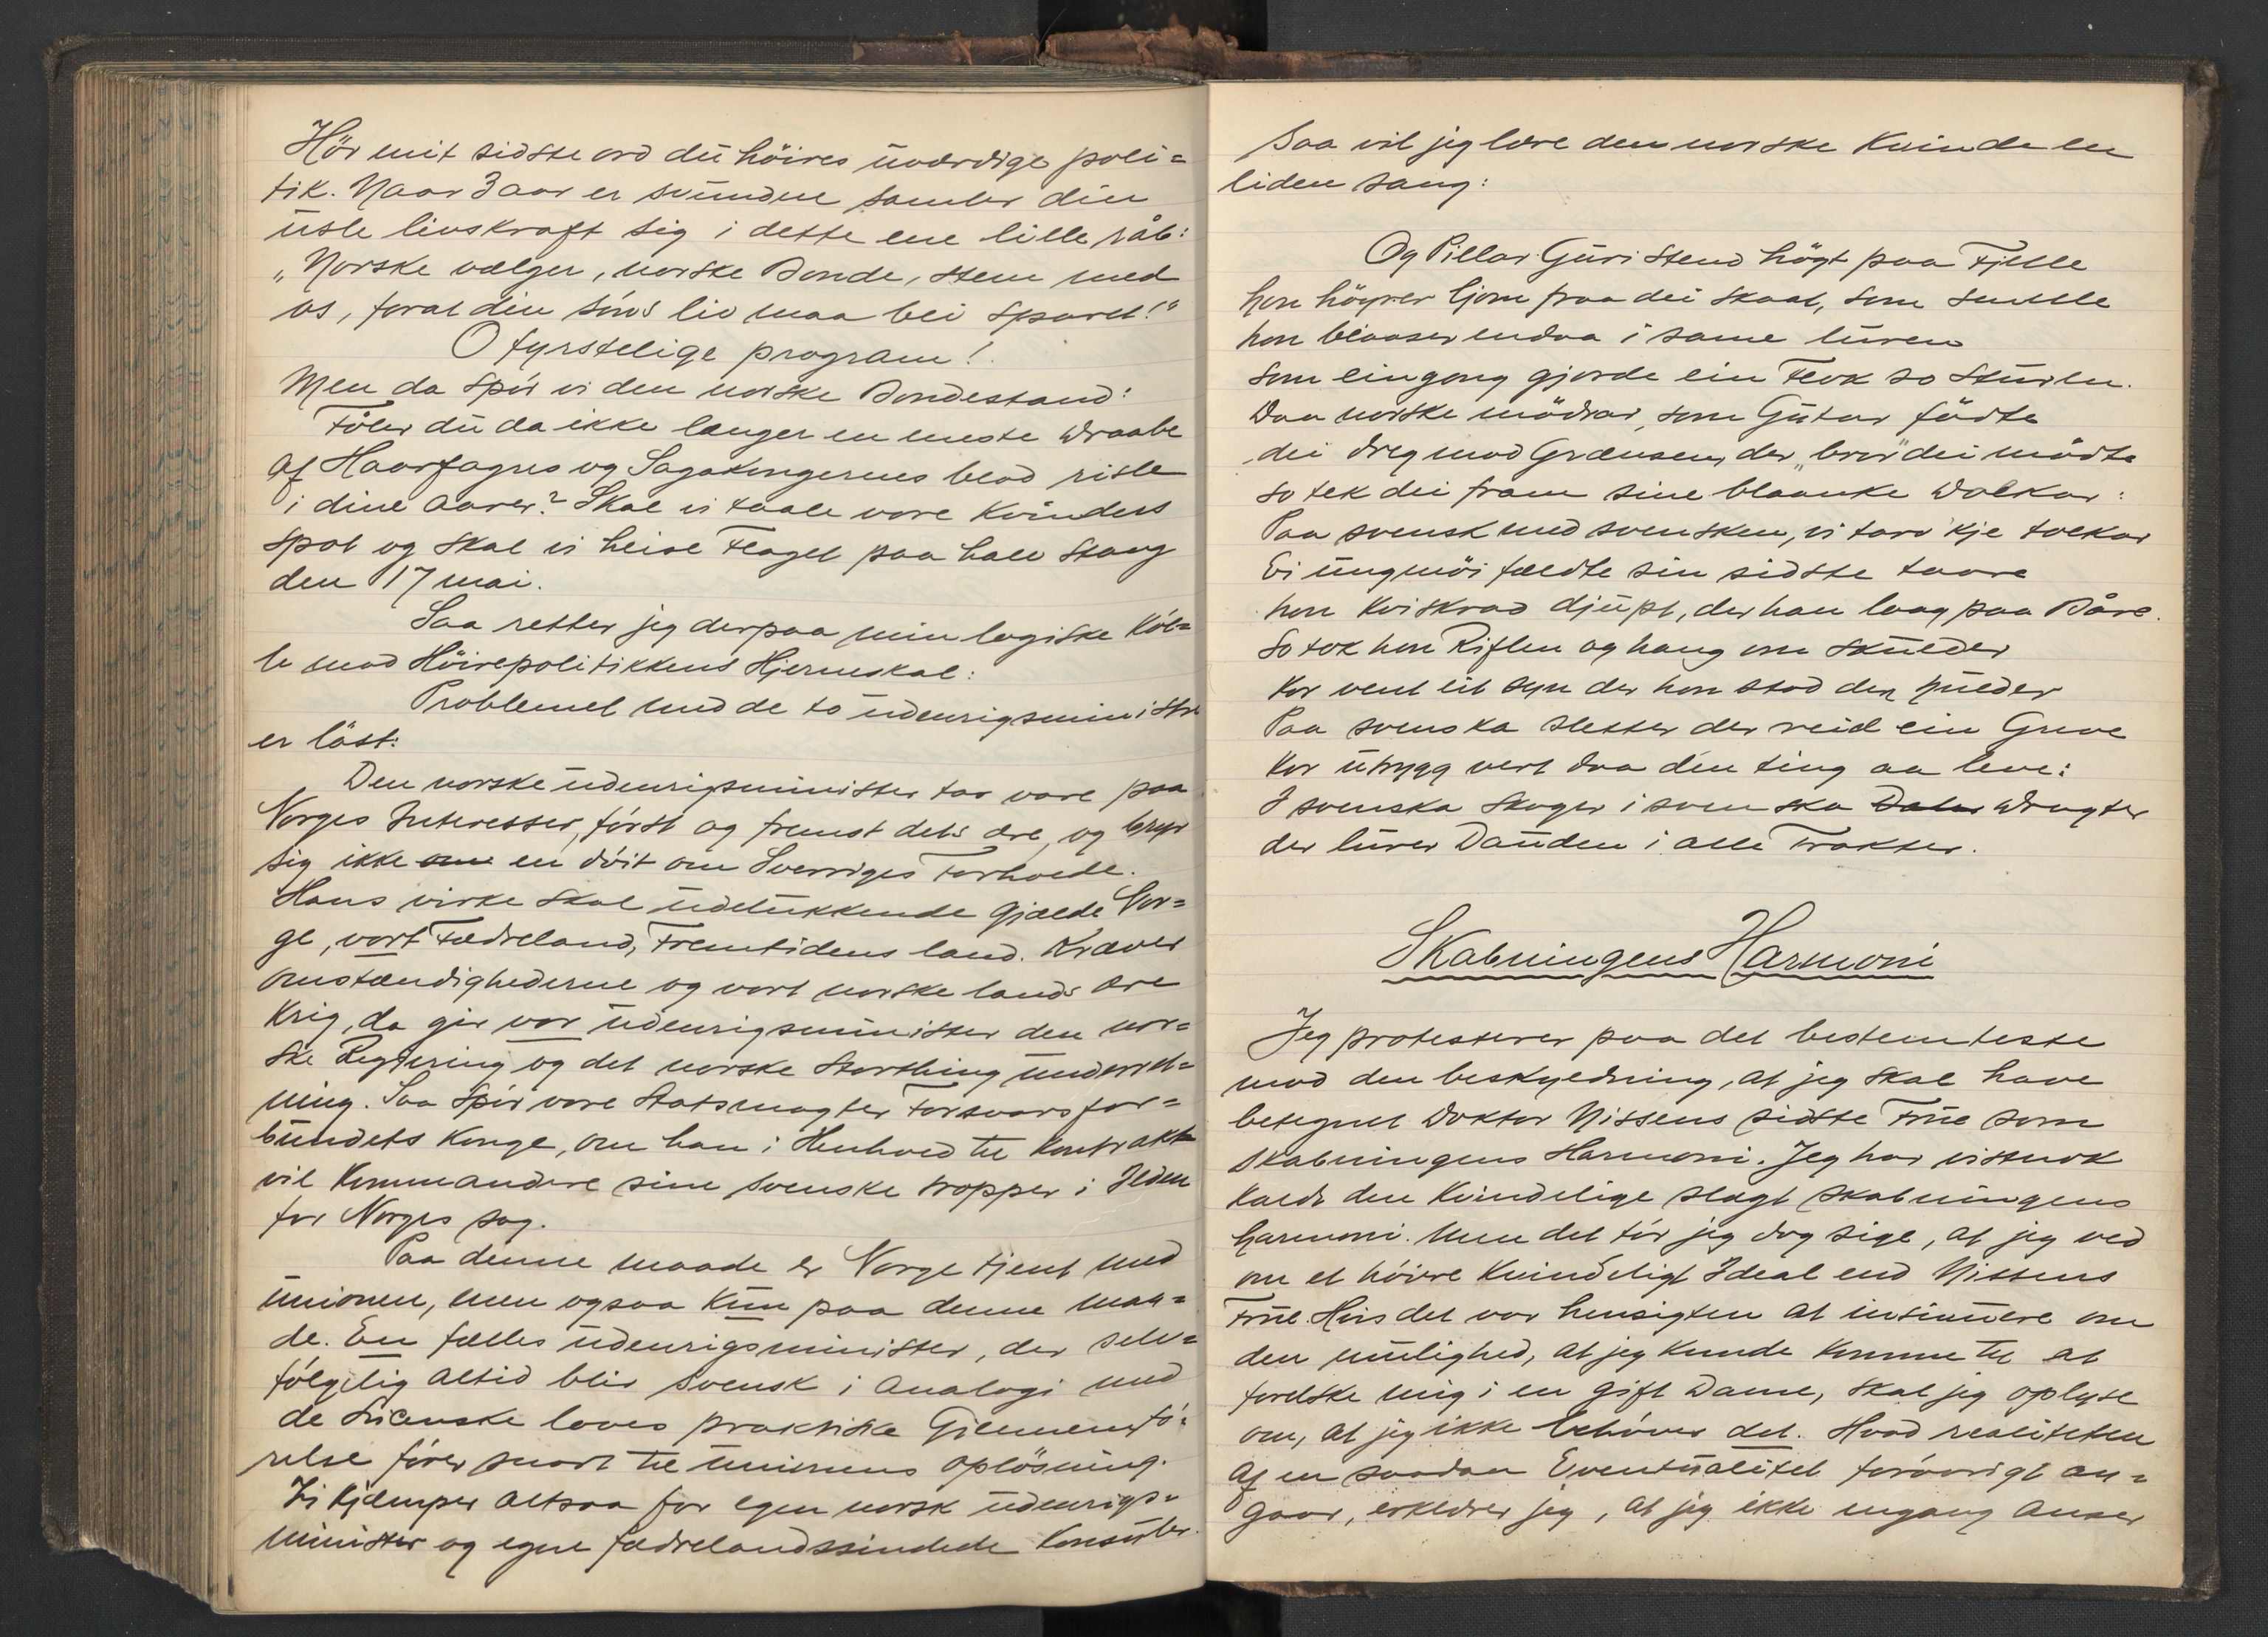 Hör mit sidste ord du höires uværdige poli=
tik. Naar 3 aar er svundne samler din
usle livskraft sig i dette ene lille råb:
„Norske vælger, norske Bonde, stem med
os, forat din söns liv maa bli sparet!"
O fyrstelige program!
Men da spör vi den norske Bondestand:
Föler du da ikke længer en eneste Draabe
af Haarfagres og Sagakongernes blod risle
i dine Aarer? Skal vi taale vore Kvinders
spot og skal vi heise Flaget paa halv Stang
den 17 mai.
Saa retter jeg derpaa min logiske Köl=
le mod Höirepolitikkens Hjerneskal:
Problemet med de to udenrigsministre
er löst:
Den norske udenrigsminister tar vare paa
Norges Interesser, först og fremst dets ære, og bryr
sig ikke om en döit om Sverriges Forhold.
Hans virke skal udelukkende gjælde Nor=
ge, vort Fædreland, Fremtidens land. Kræver
omstændighederne og vort norske lands ære
Krig, da gir vor udenrigsminister den nor=
ske Regjering og det norske Storthing underret=
ning. Saa spör vore Statsmagter Forsvarsfor=
bundets Konge, om han i Henhold til Kontrakten
vil Kommandere sine svenske tropper i Ilden
for Norges sag.
Paa denne maade er Norge tjent med
unionen, men ogsaa kun paa denne maa=
de. En fælles udenrigsminister, der selv=
fölgelig altid blir svensk i Analogi med
de svenske loves praktiske Gjennemfö=
relse förer snart til unionens oplösning.
Vi kjæmper altsaa for egen norsk udenrigs=
minister og egne fædrelandssindede Konsuler.
Saa vil jeg lære den norske Kvinde en
liden sang:
Og Pillar Guri stend högt paa Fjelle
hon höyrer ljom fraa dei skaat, som smelle
hon blaaser endaa i same luren
som ein gong gjorde ein Flok so sturen.
Daa norske mödrar, som Gutar födte
dei dreg mod Grænsen, der „bror" dei mödte
so tek dei fram sine blaanke Dolkar:
Paa svensk med svensken, vi tarv 'kje tolkar
Ei ungmöi fældte sin sidste taare
hon kviskrad djupt, der han laag paa Båre.
so tok hon Riflen og hang om skulder
Kor vent eit syn der hon stod den hulder
Paa svenska sletter der reid ein Greve
Kor uhygg vert daa den ting aa leve:
I svenska skoger i svenska Daler Drugter
der lurer Dauden i alle Trakter.
Skabningens Harmoni
Jeg protesterer paa det bestemteste
mod den beskyldning, at jeg skal have
betegnet Doktor Nissens sidste Frue som
Skabningens Harmoni. Jeg har vistnok
kaldt den Kvindelige slægt skabningens
harmoni. Men det tör jeg dog sige, at jeg ved
om et höiere kvindeligt Ideal end Nissens
Frue. Hvis det var hensigten at insinuere om
den mulighed, at jeg kunde komme til at
forelske mig i en gift Dame, skal jeg oplyse
om, at jeg ikke behöver det. Hvad realiteten
af en saadan Eventualitet foróvrigt an=
gaar, erklærer jeg, at jeg ikke engang anser